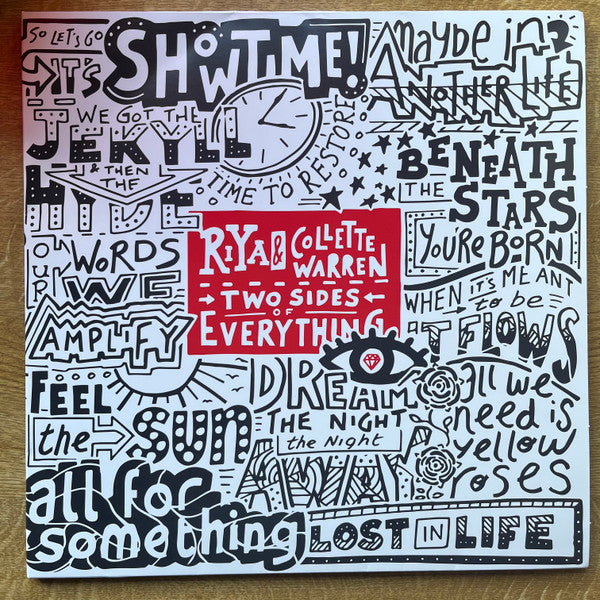 SO LET'S GO
IT'S SHOWTIME!
Maybe in
ANOTHER LIFE
WE GOT THE
JEKYLL
& THEN THE
HYDE
TIME TO RESTORE
BENEATH
THE STARS
YOU'RE BORN
RIYA & COLLETTE WARREN
TWO SIDES
OF
EVERYTHING
OUR WORDS
WE
AMPLIFY
WHEN IT'S MEANT
to be
IT FLOWS
FEEL
the SUN
DREAM
THE NIGHT
the Night
AWAY
all we
need is
yellow
roses
all for
something
LOST IN LIFE